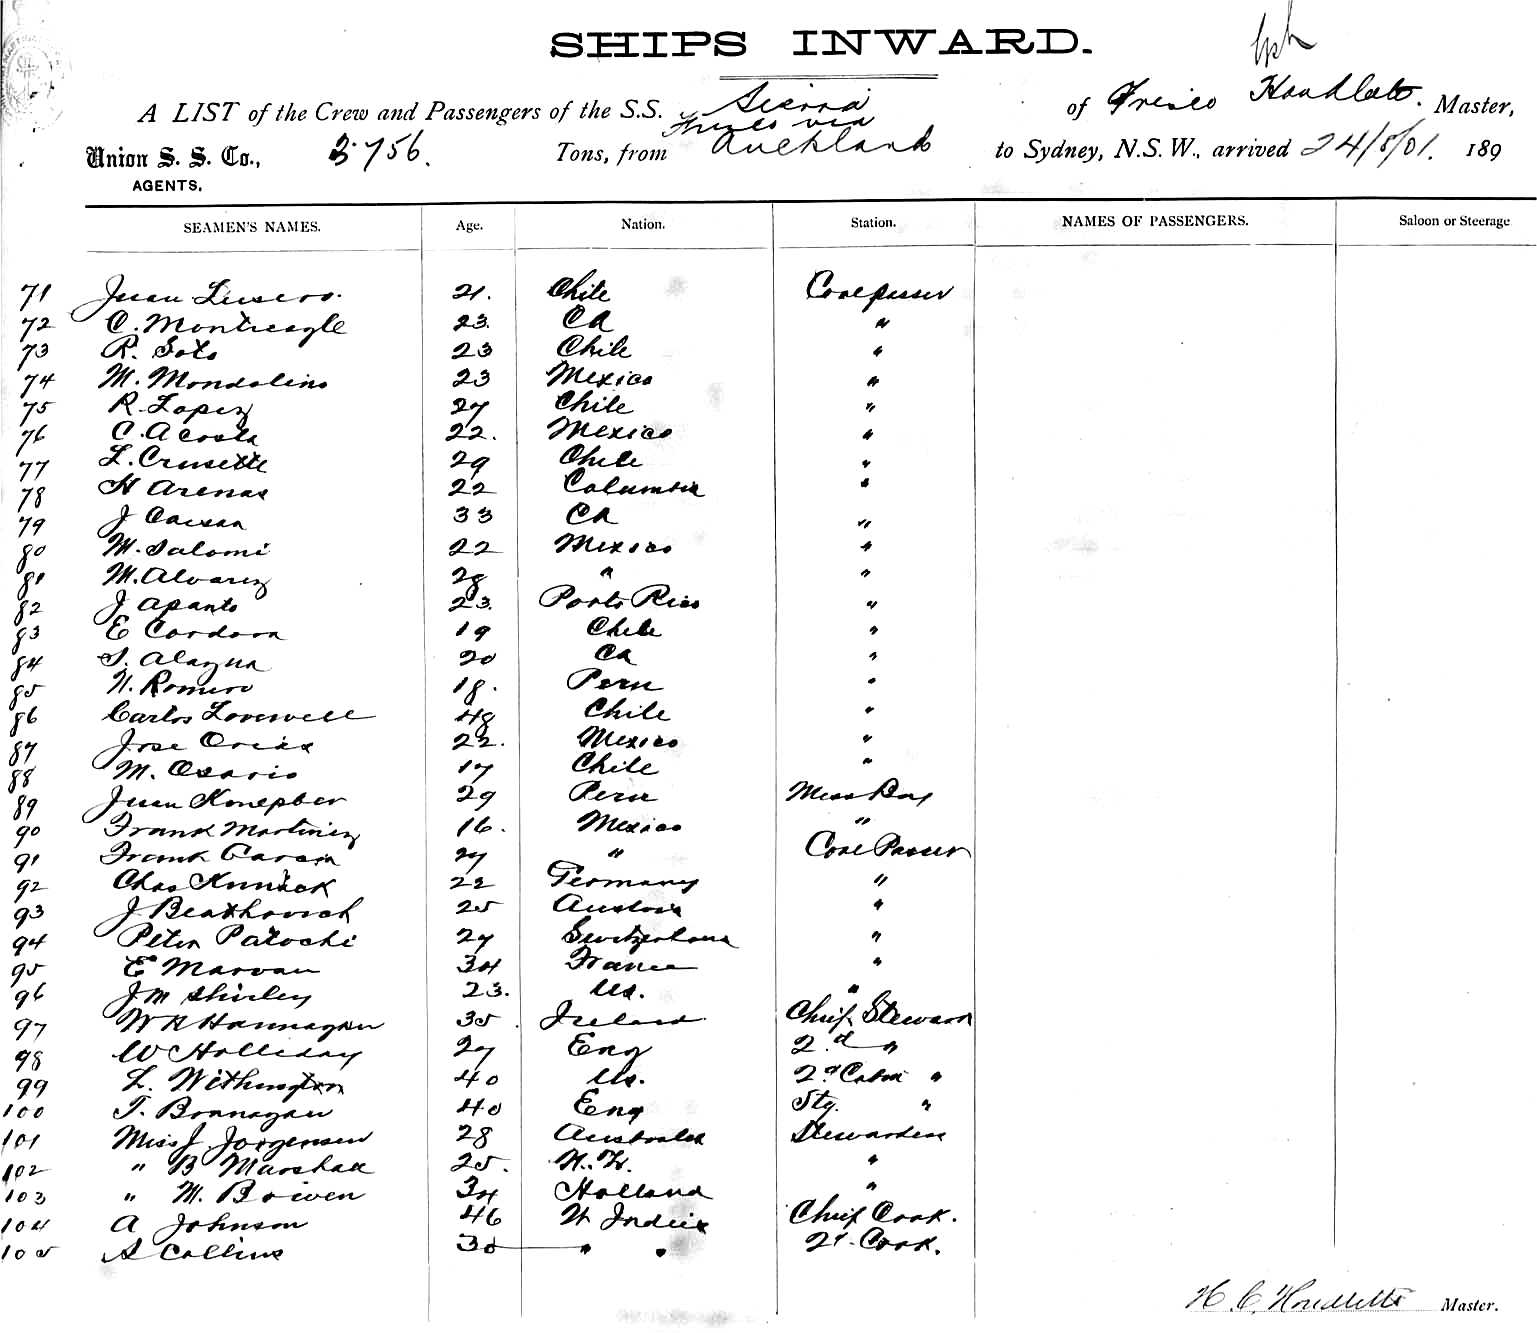 SHIPS INWARD.
A LIST of the Crew and Passengers of the S.S. Sierra of Frisco Houdlette. Master,
Union S. S. Co., 3756. Tons, from Frisco via Auckland to Sydney, N.S.W., arrived 24/5/01. 189
AGENTS.
SEAMEN'S NAMES. Age. Nation. Station. NAMES OF PASSENGERS. Saloon or Steerage
71 Juan 21. Chile Coalpasser
72 C. Montreagle 23. CA "
73 R. Soto 23 Chile "
74 M. Mondolino 23 Mexico "
75 R. Lopez 27 Chile "
76 C. Acosta 22. Mexico "
77 L. Crusette 29 Chile "
78 H Arenas 22 Columbia "
79 J 33 CA "
80 M. Salomi 22 Mexico "
81 M. Alvarez 28 " "
82 J Apanto 23. Porto Rico "
83 E Cordova 19 Chile "
84 S. 20 CA "
85 N. Romero 18. Peru "
86 Carlos Lovewell 48 Chile "
87 Jose 22. Mexico "
88 M. Osario 17 Chile "
89 Juan 29 Peru Mess Boy
90 Frank Martinez 16. Mexico "
91 Frank Garcia 27 " Coal Passer
92 Chas 22 Germany "
93 J 25 Austria "
94 Peter Patochi 27 Switzerland "
95 E Marvan 34 France "
96 J M Shirley 23. Us. "
97 W R Hannagan 35 Ireland Chief Steward
98 W Holliday 27 Eng 2.d "
99 L. Withington 40 Us. 2d Cabin "
100 T. Bonnagan 40 Eng Stg. "
101 Miss J. Jorgensen 28 Australia Stewardess
102 " B Marshall 25. N.Z. "
103 " M. Bowen 34 Holland "
104 A Johnson 46 W Indies Chief Cook.
105 A Collins " " 2d Cook.
H. C. Houdlette Master.